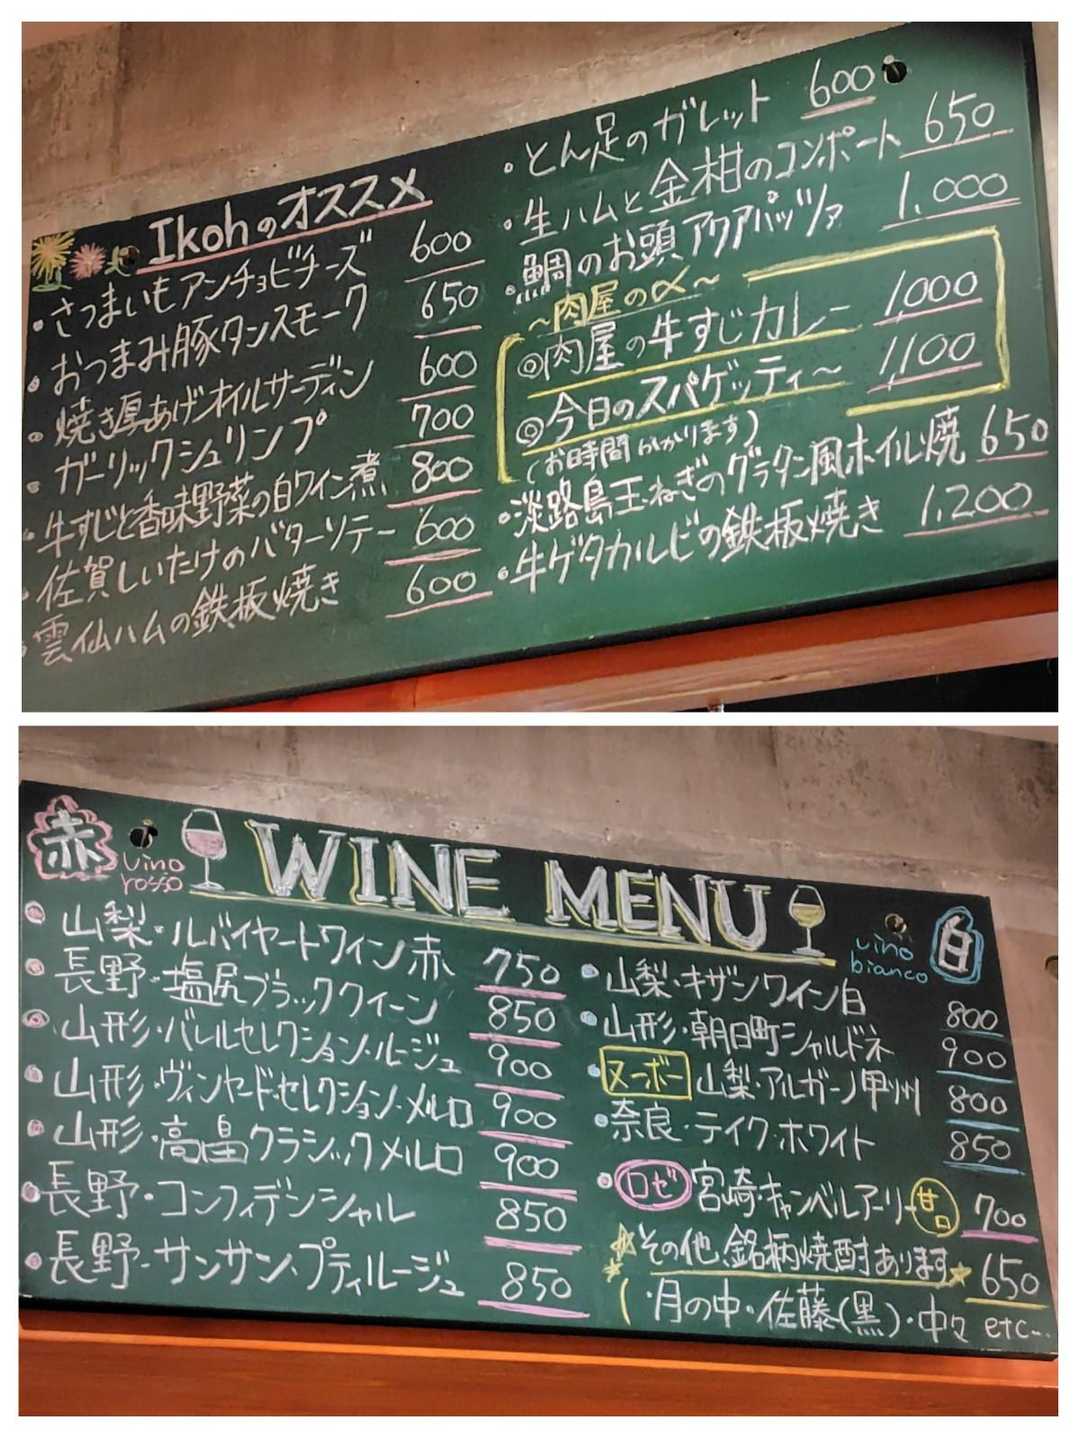 Ikohのオススメ
・さつまいもアンチョビチーズ 600
・おつまみ豚タンスモーク 650
・焼き厚あげオイルサーディン 600
・ガーリックシュリンプ 700
・牛すじと香味野菜の白ワイン煮 800
・佐賀しいたけのバターソテー 600
・雲仙ハムの鉄板焼き 600
・とん足のガレット 600
・生ハムと金柑のコンポート 650
・鯛のお頭アクアパッツァ 1,000
〜肉屋の〆〜
◎肉屋の牛すじカレー 1,000
◎今日のスパゲッティ〜 1,100
(お時間かかります)
・淡路島玉ねぎのグラタン風ホイル焼 650
・牛ゲタカルビの鉄板焼き 1,200
WINE MENU
赤 vino rosso
・山梨・ルバイヤートワイン赤 750
・長野・塩尻ブラッククイーン 850
・山形・バレルセレクション・ルージュ 900
・山形・ヴィンヤード・セレクション・メルロ 900
・山形・高畠クラシックメルロ 900
・長野・コンフィデンシャル 850
・長野・サンサン・プティルージュ 850
白 vino bianco
・山梨・キザンワイン白 800
・山形・朝日町シャルドネ 900
・ヌーボー 山梨・アルガーノ甲州 800
・奈良・テイク・ホワイト 850
・ロゼ 宮崎・キャンベルアーリー 甘口 700
☆その他、銘柄焼酎あります★ 650
(・月の中・佐藤(黒)・中々 etc...